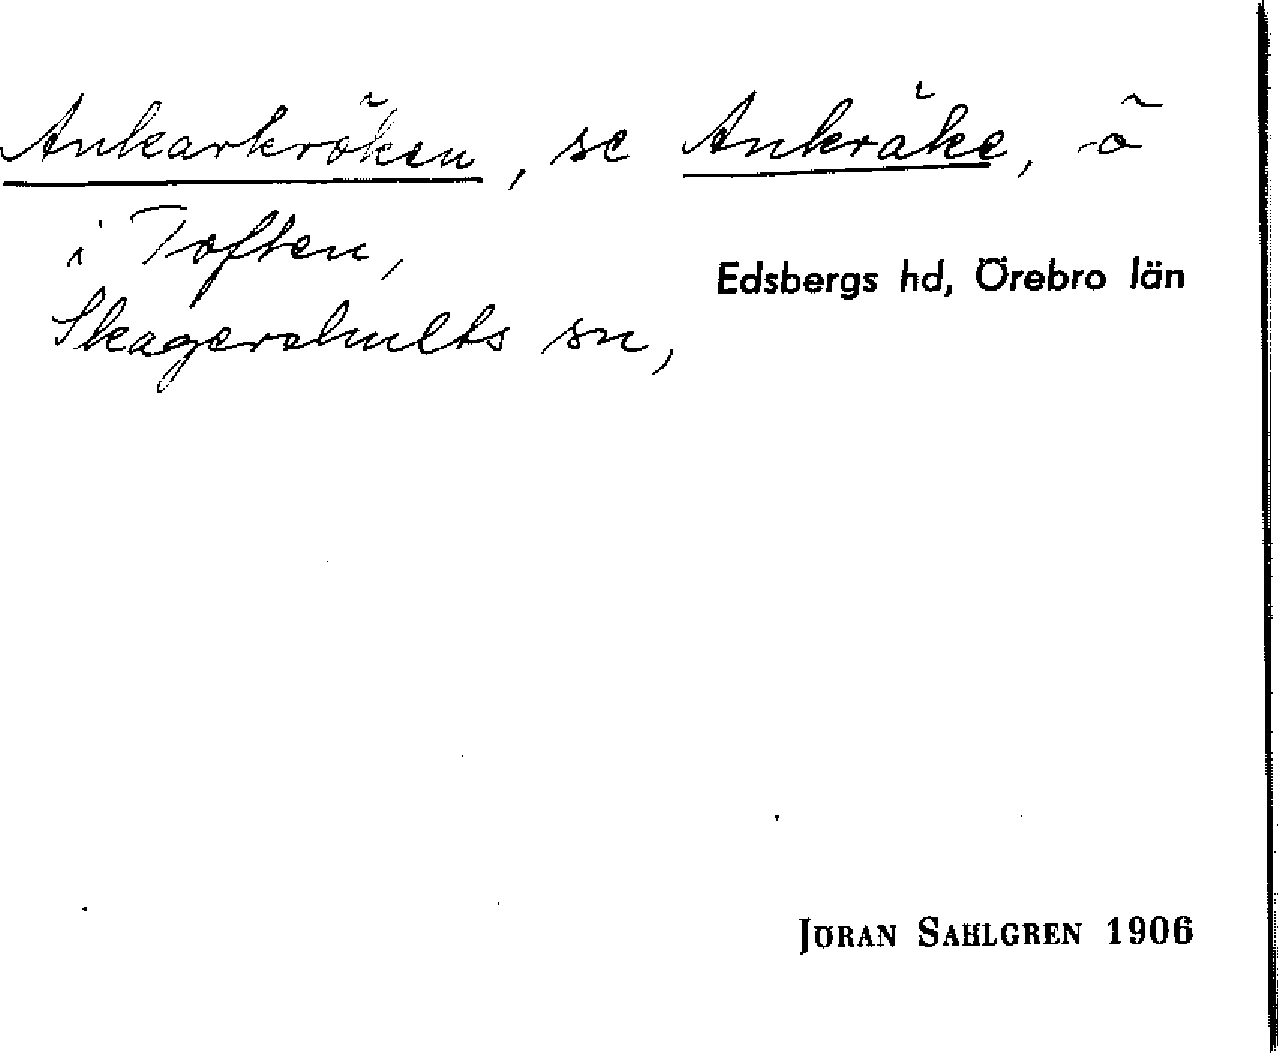 Ankarkröken, se Ankråke, ö
i Toften,
Edsbergs hd, Örebro län
Skagershults sn,
JÖRAN SAHLGREN 1906